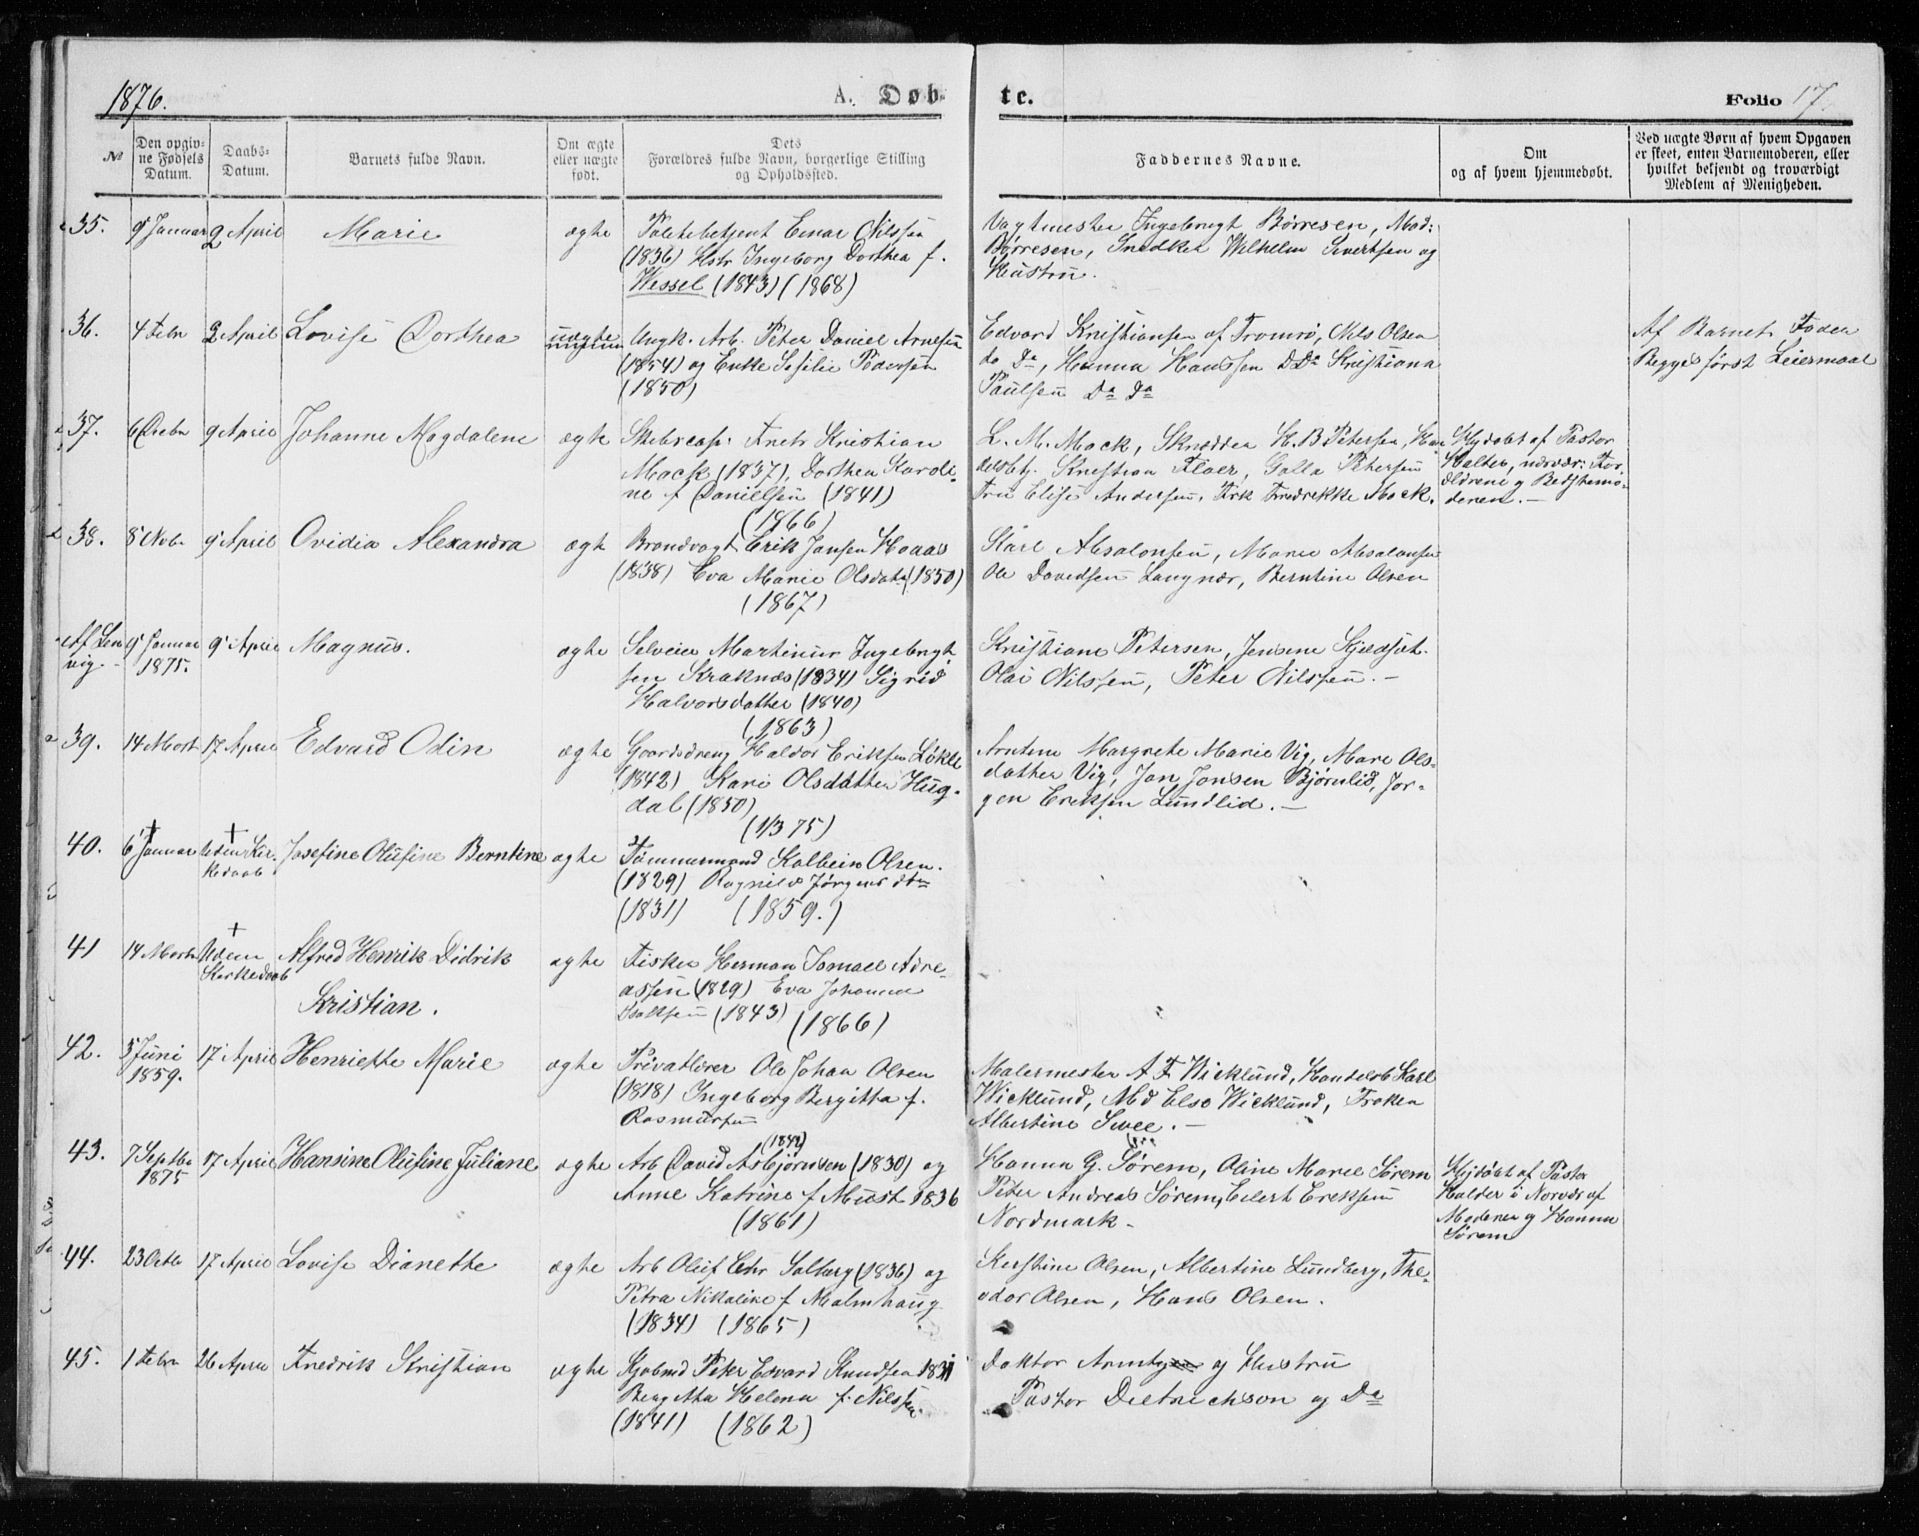 1876.
A. Døb-
te.
Folio 17.
№
Den opgiv-
ne Fødsels
Datum.
Daabs-
Datum.
Barnets fulde Navn.
Om ægte
eller uægte
født.
Dets
Forældres fulde Navn, borgerlige Stilling
og Opholdssted.
Faddernes Navne.
Om
og af hvem hjemmedøbt.
Ved uægte Børn af hvem Opgaven
er skeet, enten Barnemoderen, eller
hvilket bekjendt og troværdigt
Medlem af Menigheden.
35.
9 Januar
9 April
Marie
ægte
Politebetjent Einar Nilssen
(1836) Hstr Ingeborg Dorthea f.
Wessel (1843) (1868)
Vagtmester Ingebrigt Børresen, Mad:
Børresen, Snedker Wilhelm Sivertsen og
Hustru.
36.
4 Febr
2 April
Lovise Dorthea
uægte
Ungk. Arb. Peter Daniel Arnesen
(1854) og Enke Sefilie Pedersen
(1850)
Edvard Kristiansen af Tromsø, Nils Olsen
do Do, Hanna Hanssen D Do Kristiana
Paulsen Do Do
Af Barnets Fader
Begges første Leiermaal
37.
6 Decbr
9 April
Johanne Magdalene
ægte
Skibscap: Fredr Kristian
Mack (1837), Dorthea Karoli-
ne f Danielsen (1841)
(1866)
L. M. Mack, Skrædder H. B Petersen, Han
delsbtj. Kristian Floer, Galla Petersen
Fru Elise Andersen, Frk Fredrikke Mack.
Hjdøbt af Pastor
Halter, nærvær: For-
ældrene og Bedstemo-
deren. -
38.
8 Novbr
9 April
Ovidia Alexandra
ægte
Brandvagt Erik Jansen Hoaas
(1838) Eva Marie Olsdatr (1850)
(1867)
Karl Absalonsen, Marie Absalonsen
Ole Davidsen Langnær, Berntine Olsen
Af Len
vig. -
9 Januar
1875.
9 April
Magnus.
ægte
Selveier Martinus Ingebrigt
sen Kraknæs (1834) Sigrid
Halvorsdatter (1840)
(1863)
Kristiane Petersen, Jensine Kjeldset.
Olai Nilssen, Peter Nilssen. -
39.
14 Mart
17 April
Edvard Odin
ægte
Gaardsdreng Haldor Eriksen Løkke
(1842) Kari Olsdatter Hug-
dal (1850)
(1/3 75)
Arntine Margrete Marie Vig, Mare Ols-
datter Vig, Jon Jonsen Bjørnlid, Jør-
gen Eriksen Lundlid. -
40.
6 Januar
Uden Kir
kedaab
Josefine Olufine Berntine
ægte
Tømmermand Kolbein Olsen.
(1829) Ragnild Jørgens dtr
(1831) (1859.)
41
14 Marts
Uden
Kirkedaab
Alfred Henrik Didrik
Kristian.
ægte
Fisker Herman Ismael Adre-
assen (1829) Eva Johanna
Isaksen (1843) (1866)
42.
5 Juni
1859.
17 April
Henriette Marie
ægte
Privatlærer Ole Johan Olsen
(1818) Ingeborg Bergitta f.
Rasmussen
Malermester A F. Wicklund, Handelsb Karl
Wicklund, Md Else Wicklund, Frøken
Albertine Swee. -
43.
7 Septbr
1875
17 April
Hansine Olufine Juliane
ægte
Arb David Asbjørnsen (1830) og
Anne Katrine f Must 1836
(1861)
Hanna G. Sørem, Oline Marie Sørem
Peter Andreas Sørem, Eilert Eriksen
Nordmark -
Hjdøbt af Pastor
Halder i Nærvær af
Moderen og Hanna
Sørem
44.
23 Octb
17 April
Lovise Dianette
ægte
Arb Oluf Chr Solberg (1836) og
Petra Nikoline f Malmhaug
(1834) (1865)
Kerstine Olsen, Albertine Lundberg, The-
odor Olsen, Hans Olsen.
45.
1 Febr
26 April
Fredrik Kristian
ægte
Kjøbmd Peter Edvard Knudsen 1831
Bergitta Helena f. Nilssen
(1841) (1862)
Doktor og Hustru
Pastor Dietrichson og Do